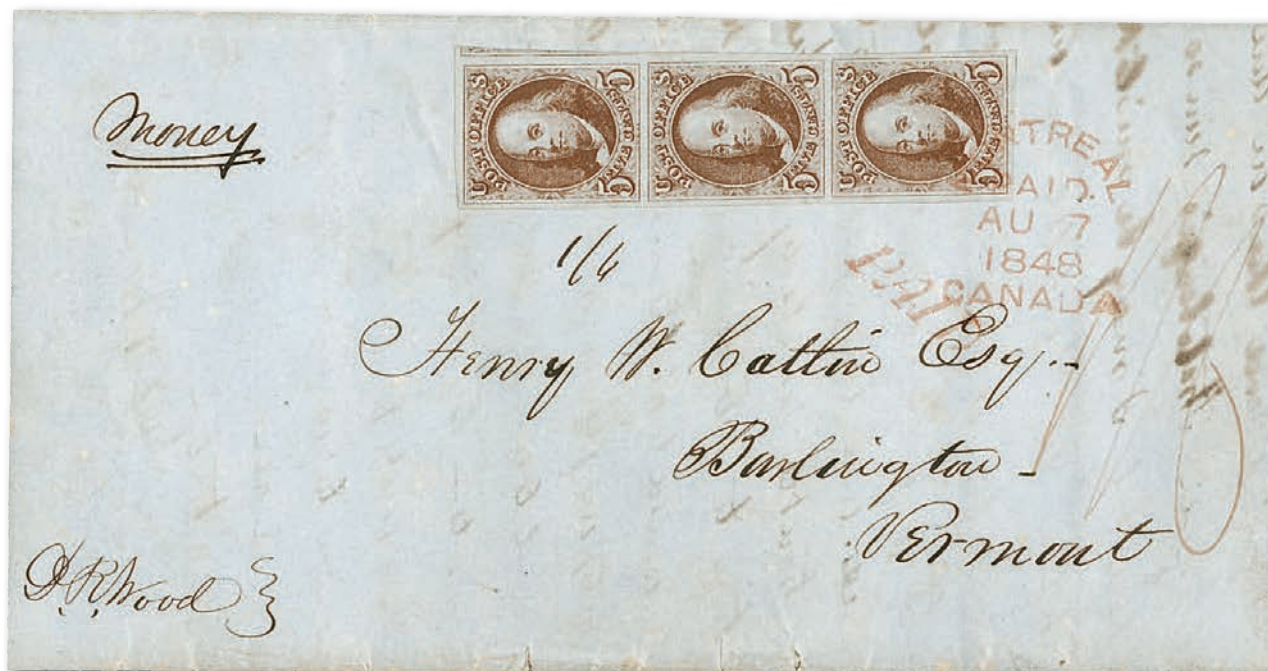 Money
U S 5
POST OFFICE FIVE CENTS
U S 5
POST OFFICE FIVE CENTS
U S 5
POST OFFICE FIVE CENTS
TREAL
AID.
AU 7
1848
CANADA
PAID
1/6
1/6
Henry W. Catlin Esq.
Burlington
Vermont
D. R. Wood